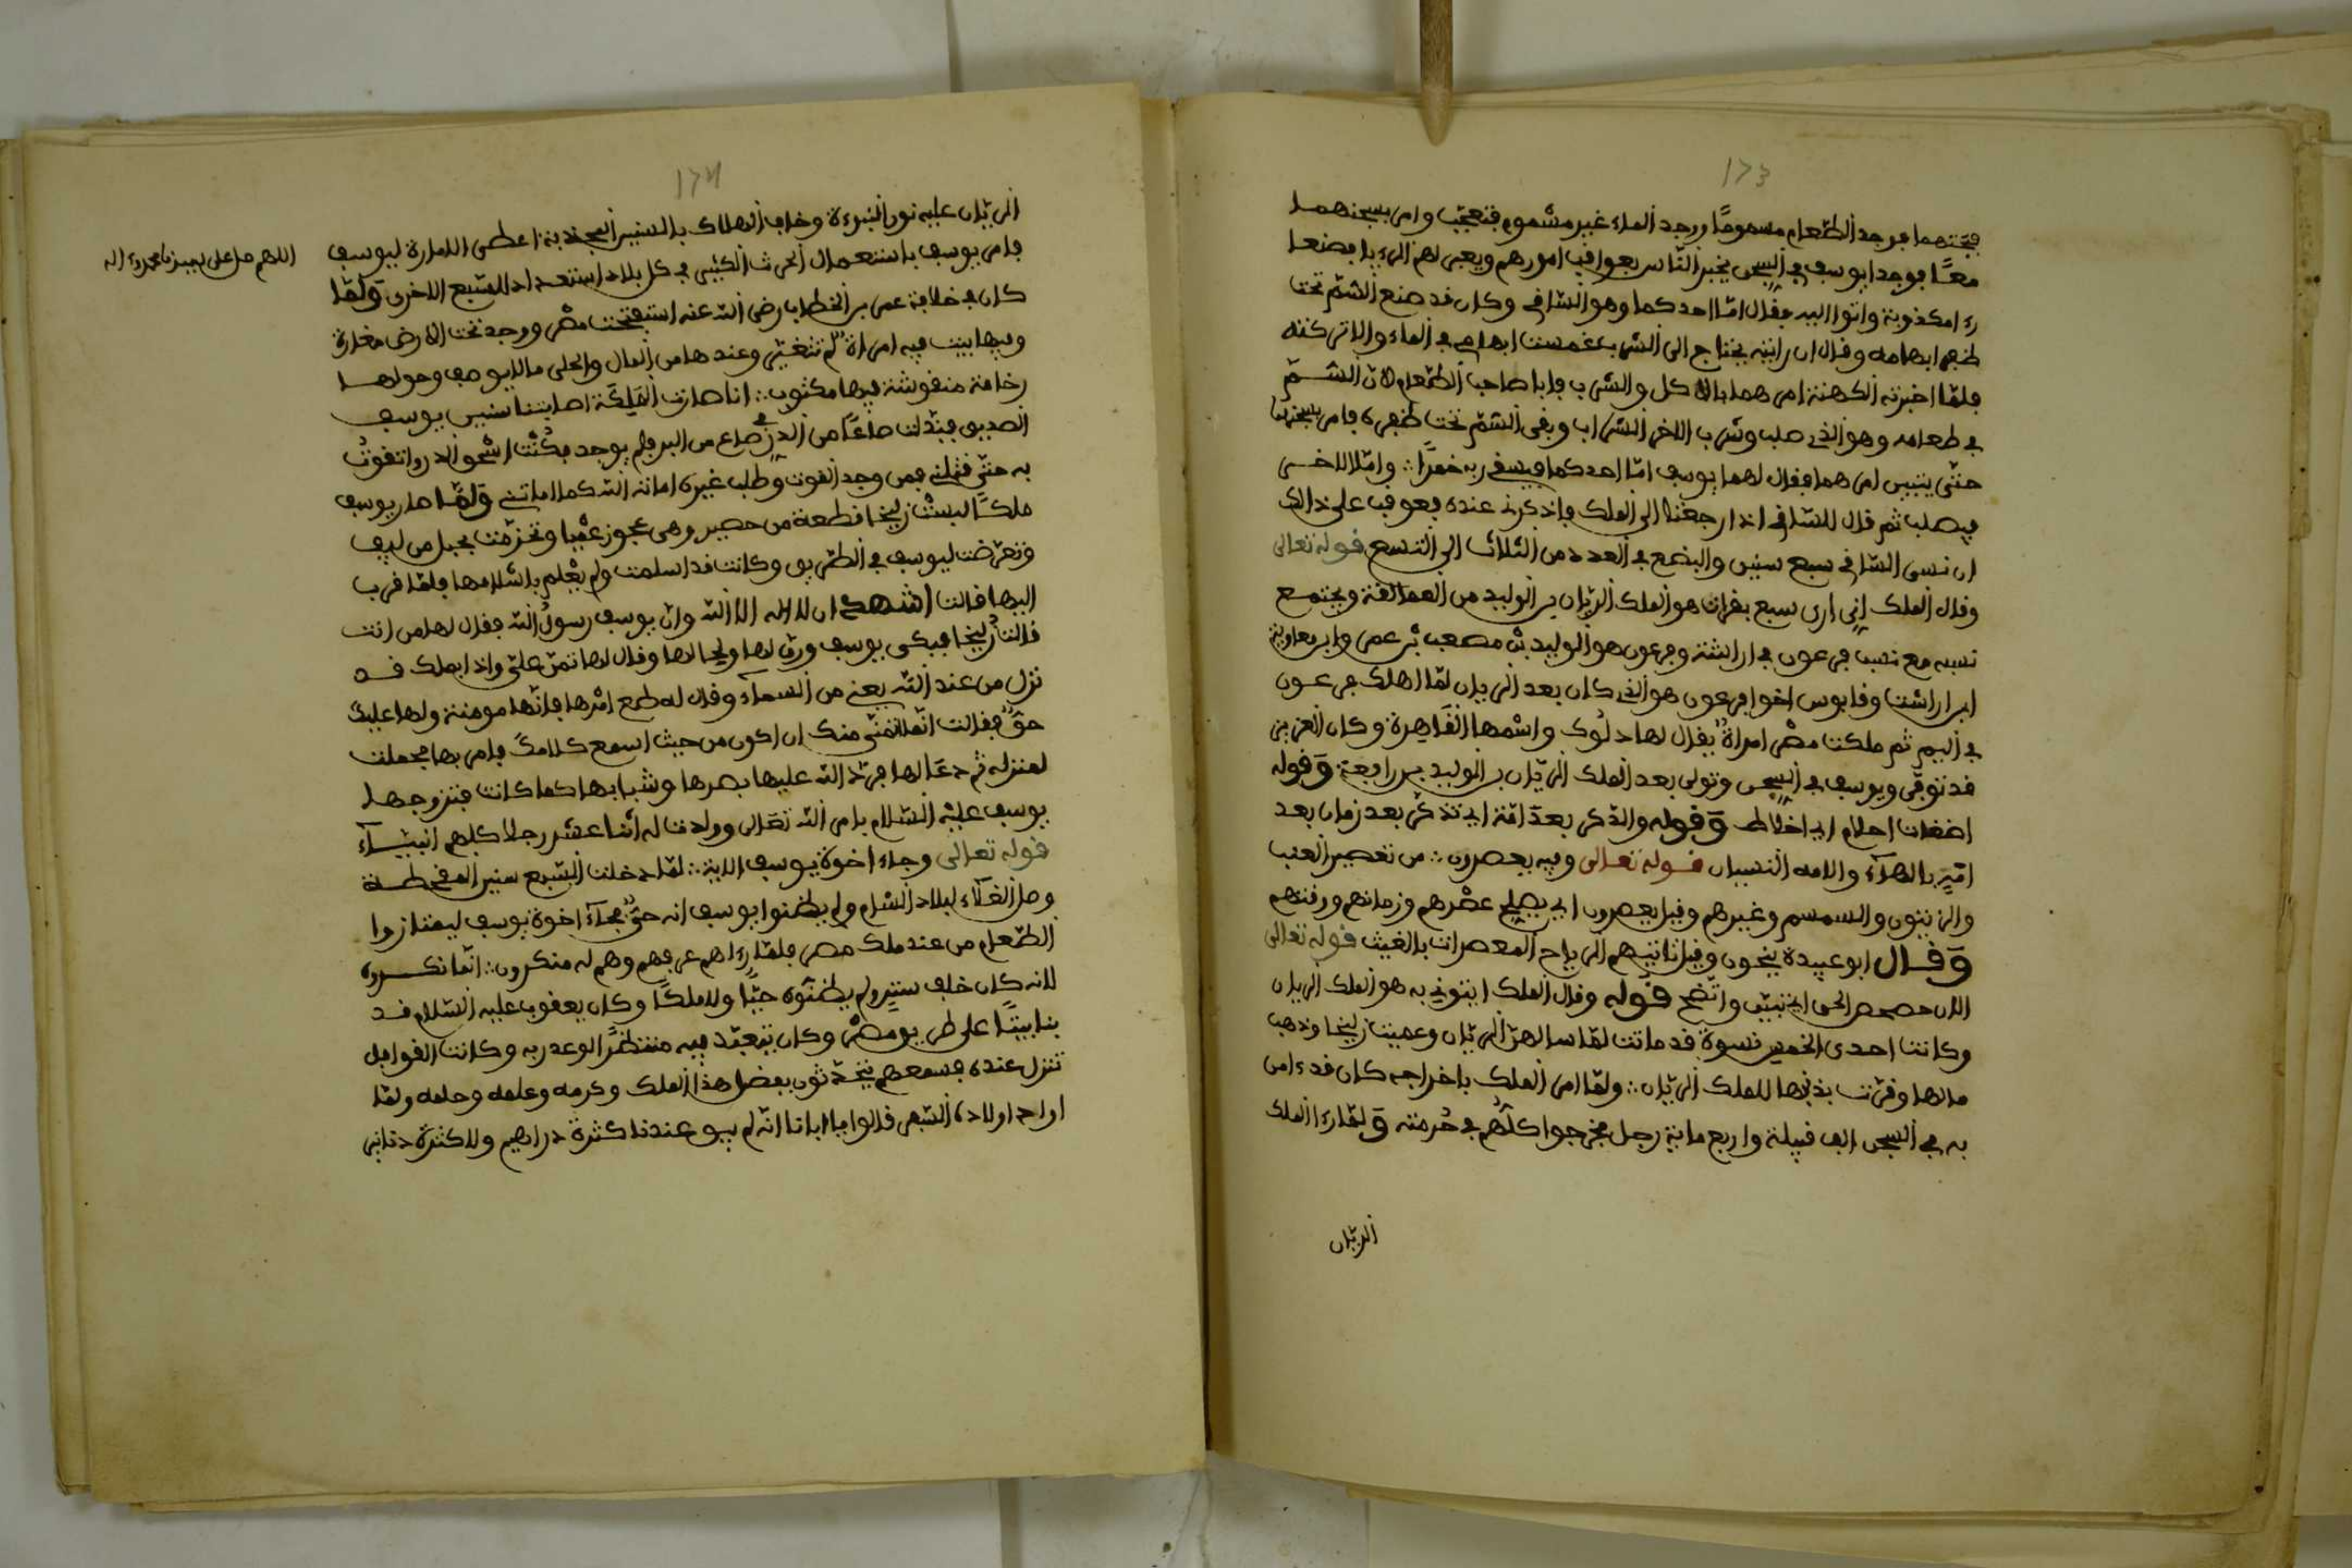 173
فيجتهما فوجد الطّعام مسموماً ووجد الماء غير مشموم فتعجّب وامر بسجنهما
معًا فوجد ايوسف في السجن يخبر النّاس بعواقب امورهم ويعبر لهم الرءيا فصنعا
رءيا مكذوبة واتوا اليه فقال امّا احدكما وهو السّافي وكان قد صنع السّم تحت
ظفر ابهامه وقال ان رايته يحتاج الى الشرب غمست ابهامي في الماء والا تركته
فلمّا اخبرته الكهنة امر هما بالاكل والشرب فابا صاحب الطّعام لان السّمّ
في طعامه وهو الذي صلب وشرب الاخر الشراب وبقى السّم تحت ظفره فامر بسجنهما
حتّى يتبين امرهما فقال لهما يوسف امّا احدكما فيسقي ربه خمرًا وامّا الاخر
فيصلب ثم قال للسّافي اذا رجعت الى الملك فاذكرني عنده فعوقب على ذالك
ان نسى السّافي سبع سنين والبضع في العدد من الثلاث الى التسع قوله تعالى
وقال الملك إني ارى سبع بقرات هو الملك الرّيّان بن الوليد من العمالقة ويجتمع
نسبه مع نسب فرعون في اراشة وفرعون هو الوليد بن مصعب بن عمر وابن معاوية
ابن اراشت وقابوس اخوا فرعون هو الذي كان بعد الريان لمّا اهلك فرعون
في اليم ثم ملكت مصر امراةٌ يقال لها دلوك واسمها القاهرة وكان العزيز
قد توفّي ويوسف في السجن وتولى بعد الملك الرّيّان بن الوليد بن رابعة وقوله
اضغاث احلام اي اخلاط وقوله والدّكر بعد امّة اي تذكّر بعد زمان بعد
امّةٍ بالهآء والامه النسيان قوله تعالى وفيه يعصرون من تعصير العنب
والزيتون والسمسم وغيرهم وقيل يعصرون اي يصلح عصرهم وزمانهم ورقتهم
وقال ابو عبيدة ينجون وقيل تاتيهم الرياح المعصرات بالغيث قوله تعالى
الان حصحص الحق اي تبيّن واتّضح قوله وقال الملك ايتوني به هو الملك الريان
وكانت احدى الخمس نسوة قد ماتت لمّا سالهن الرّيّان وعميت زليخا وذهب
مالها وقرّت بذنبها للملك الرّيّان ولمّا امر الملك باخراجه كان قدءامن
به في السجن الف قبيلة واربع ماية رجل فخرجوا كلّهم في حرمته ولمّا رءا الملك
الريّان
174
الريّان عليه نور النبوءة وخاف الهلاك بالسنين المجدبة اعطى الامارة ليوسف
فامر يوسف باستعمال الحرث الكثير في كل بلاد استعداد للسّبع الاخرى ولمّا
كان في خلافة عمر بن الخطاب رضي الله عنه استفتحت مصر ووجد تحت الارض مغارة
وفيها بيت فيه امراة لم تتغيّر وعندها من المال والحلى ما لا يوصف وحولها
رخامة منقوشة فيها مكتوب انا صارت الملكة اصابتنا سنين يوسف
الصديق فبذلت صاعًا من الدر في صاع من البر فلم يوجد فكنت اشحو الدر واتقوتُ
به حتّى قتلني فمن وجد القوت وطلب غيره اماته الله كما اماتني ولمّا صار يوسف
ملكًا لبست زليخا قطعة من حصير وهي عجوز عميا وتحزّمت بحبل من ليف
وتعرّضت ليوسف في الطريق وكانت قد اسلمت ولم يعلم باسلامها فلمّا قرب
اليها قالت اشهد ان لا اله الا الله وان يوسف رسول الله فقال لها من انت
قالت زليخا فبكى يوسف ورق لها ولحالها وقال لها تمنّ علىّ واذا بملك قد
نزل من عند الله يعني من السمآء وقال له طمع امرها فانّها مومنة ولها عليك
حقٌّ فقالت انّما اتمنّى منك ان اكون من حيث اسمع كلامك فامر بها فحملت
لمنزله ثم دعا لها فردّ الله عليها بصرها وشبابها كما كانت فتزوجها
يوسف عليه السّلام بامر الله تعالى وولدت له اثنا عشر رجلا كلهم انبيآء
قوله تعالى وجاء اخوة يوسف الاية لمّا دخلت السّبع سنين المقحطة
وصل الغلآء لبلاد الشام ولم يظنوا يوسف انه حيٌّ فجآء اخوة يوسف ليمتازوا
الطّعام من عند ملك مصر فلمّا رءاهم عرفهم وهم له منكرون انّما نكروه
لانه كان خلف ستير ولم يظنّوه حيًّا ولا ملكًا وكان يعقوب عليه السّلام قد
بنا بيتًا على طريق مصر وكان يتعبّد فيه منتظرًا لوعد ربه وكانت القوافل
تنزل عنده فسمعهم يتحدّثون بفضل هذا الملك وكرمه وعلمه وحلمه ولمّا
اراد اولاده السّفر قالوا يا ابانا انّه لم يبق عندنا كثرة دراهيم ولا كثرة دنانير
اللهم صل على سيدنا محمد وءاله